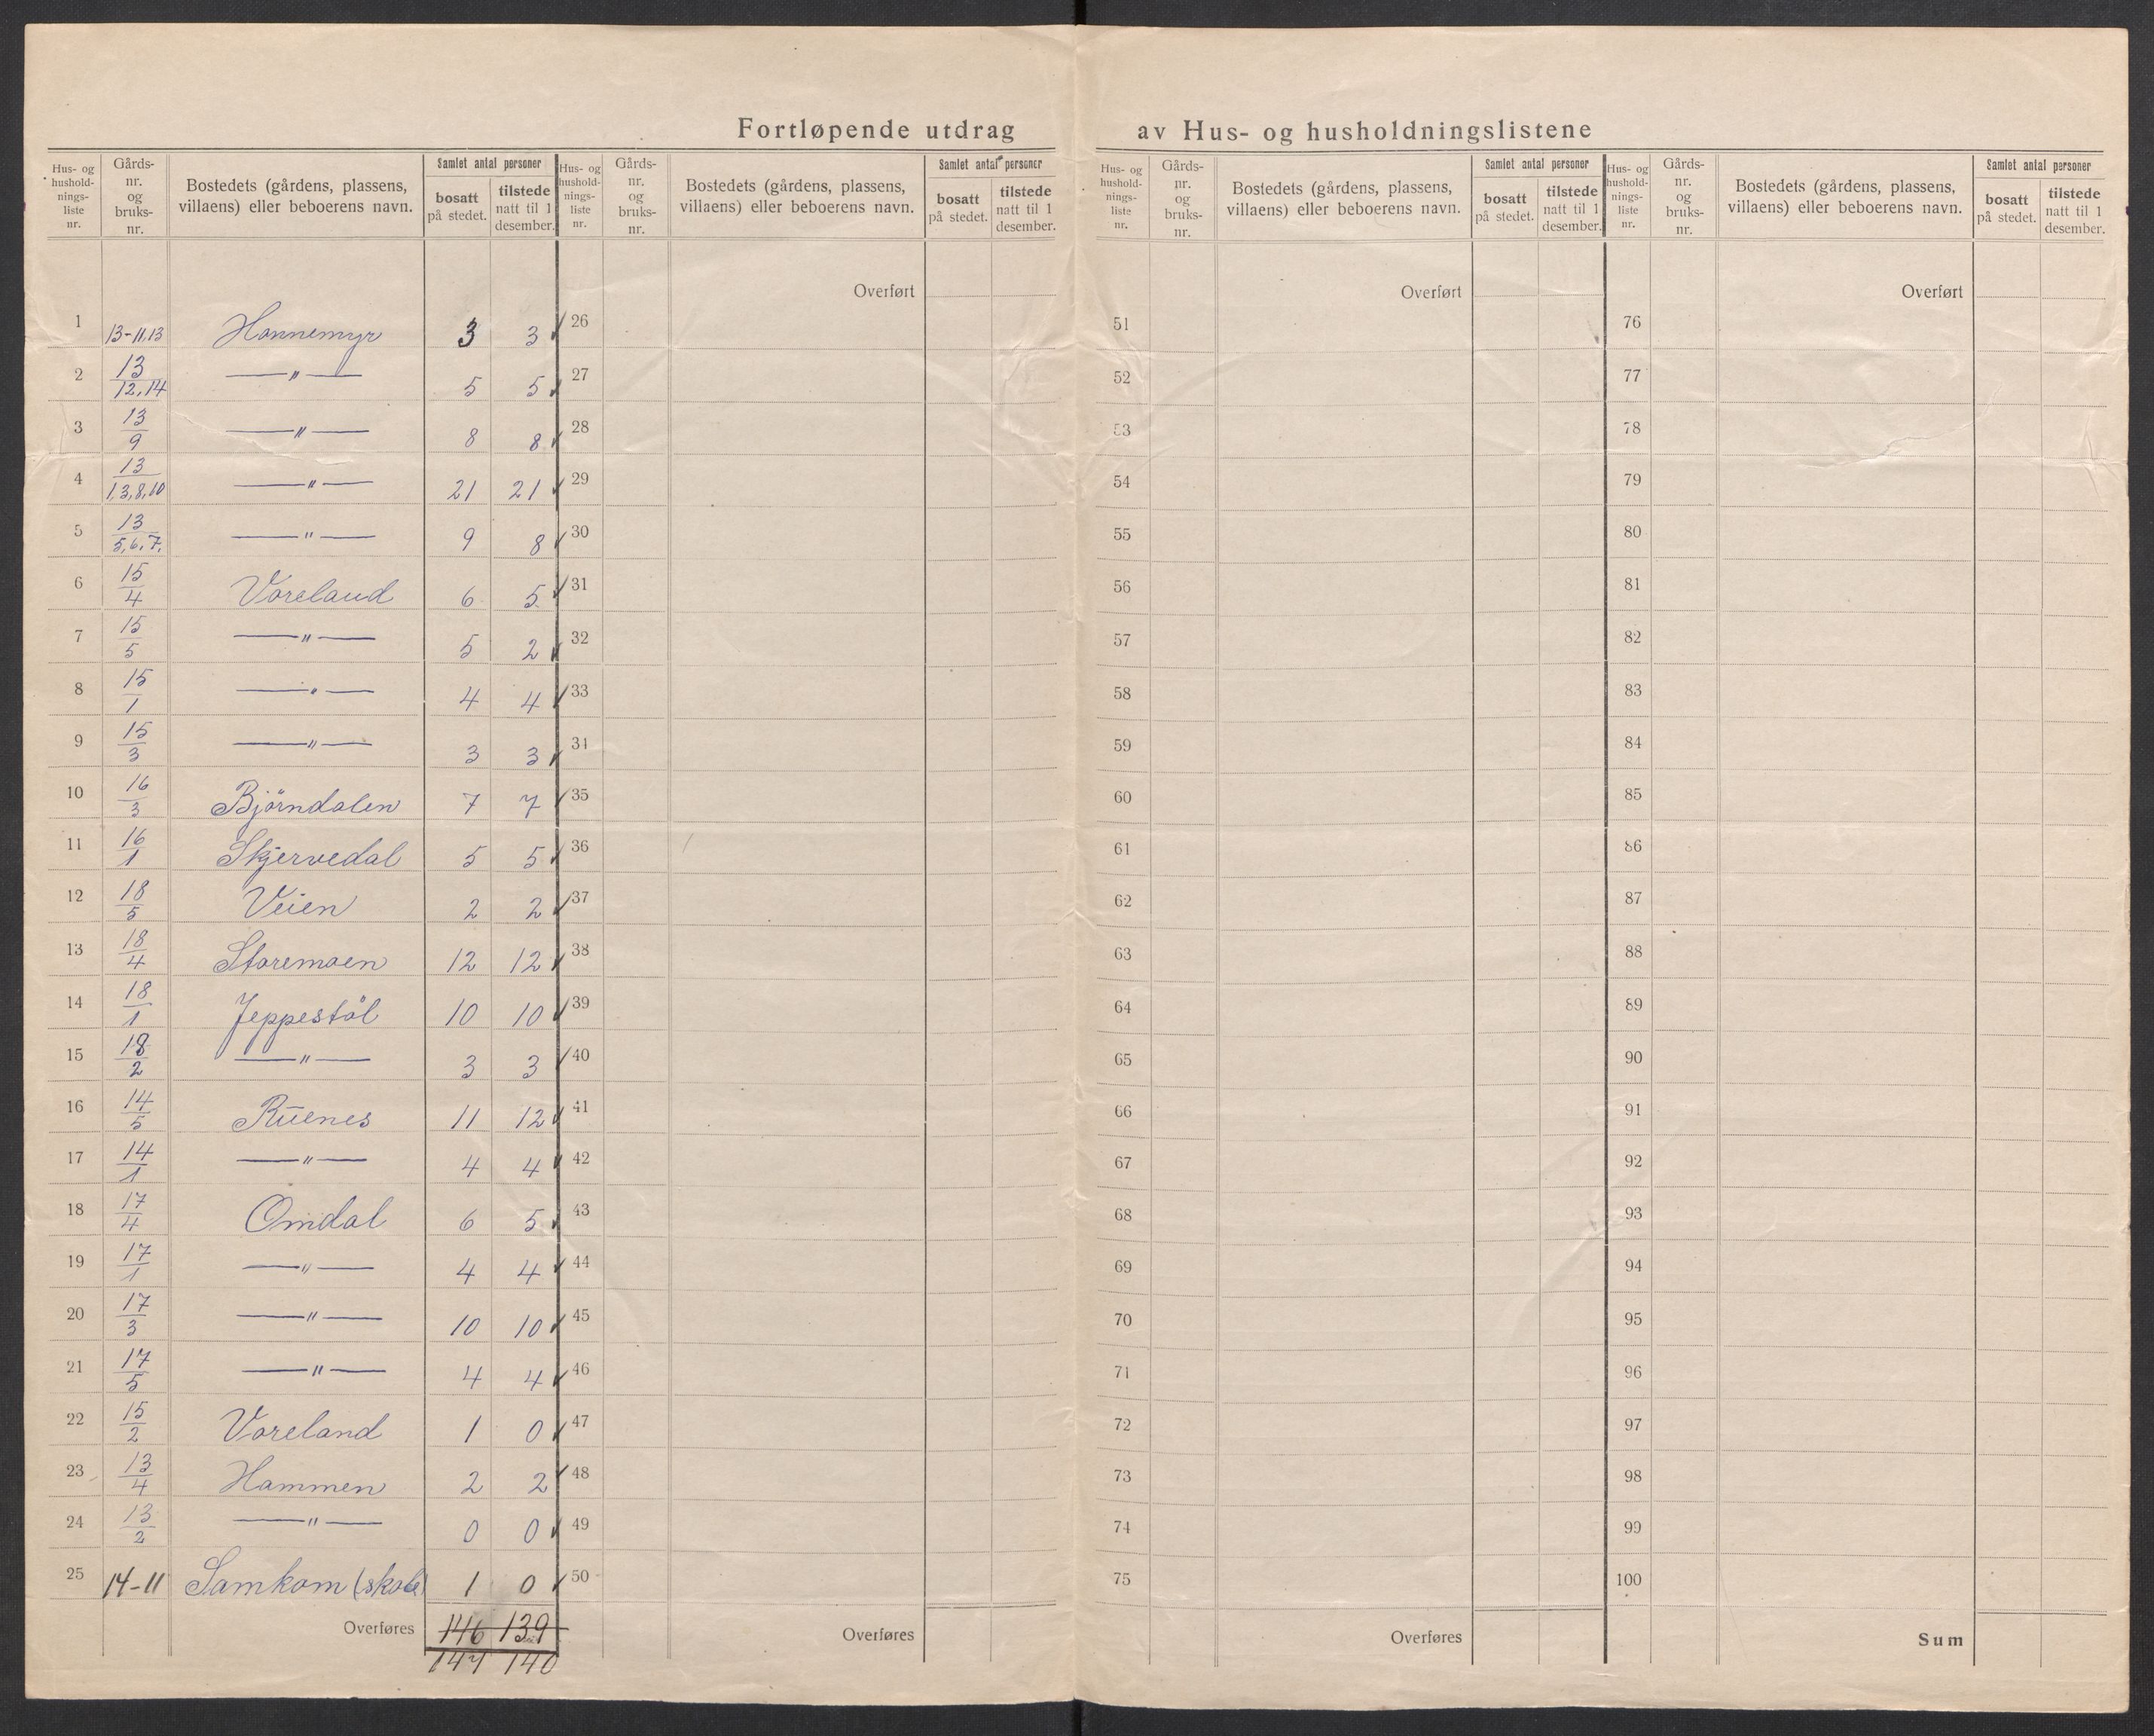 Fortløpende utdrag av Hus- og husholdningslistene
Hus- og hushold-nings-liste nr. | Gårds-nr. og bruks-nr. | Bostedets (gårdens, plassens, villaens) eller beboerens navn. | Samlet antal personer | bosatt på stedet. | tilstede natt til 1 desember.
Hus- og hushold-nings-liste nr. | Gårds-nr. og bruks-nr. | Bostedets (gårdens, plassens, villaens) eller beboerens navn. | Samlet antal personer | bosatt på stedet. | tilstede natt til 1 desember.
Hus- og hushold-nings-liste nr. | Gårds-nr. og bruks-nr. | Bostedets (gårdens, plassens, villaens) eller beboerens navn. | Samlet antal personer | bosatt på stedet. | tilstede natt til 1 desember.
Hus- og hushold-nings-liste nr. | Gårds-nr. og bruks-nr. | Bostedets (gårdens, plassens, villaens) eller beboerens navn. | Samlet antal personer | bosatt på stedet. | tilstede natt til 1 desember.
Overført Overført Overført
1 13-11,13 Hannemyr 3 3 ✓ 26 51 76
2 13/12,14 —"— 5 5 ✓ 27 52 77
3 13/9 —"— 8 8 ✓ 28 53 78
4 13/1,3,8,10 —"— 21 21 ✓ 29 54 79
5 13/5,6,7, —"— 9 8 ✓ 30 55 80
6 15/4 Vareland 6 5 ✓ 31 56 81
7 15/5 —"— 5 2 ✓ 32 57 82
8 15/1 —"— 4 4 ✓ 33 58 83
9 15/3 —"— 3 3 ✓ 34 59 84
10 16/3 Björndalen 7 7 ✓ 35 60 85
11 16/1 Skjervedal 5 5 ✓ 36 61 86
12 18/5 Veien 2 2 ✓ 37 62 87
13 18/4 Staremoen 12 12 ✓ 38 63 88
14 18/1 Jeppestöl 10 10 ✓ 39 64 89
15 18/2 —"— 3 3 ✓ 40 65 90
16 14/5 Ruenes 11 12 ✓ 41 66 91
17 14/1 —"— 4 4 ✓ 42 67 92
18 17/4 Omdal 6 5 ✓ 43 68 93
19 17/1 —"— 4 4 ✓ 44 69 94
20 17/3 —"— 10 10 ✓ 45 70 95
21 17/5 —"— 4 4 ✓ 46 71 96
22 15/2 Vareland 1 0 ✓ 47 72 97
23 13/4 Hammen 2 2 ✓ 48 73 98
24 13/2 —"— 0 0 ✓ 49 74 99
25 14-11 Samkom (skole) 1 0 ✓ 50 75 100
Overføres 146 139 Overføres Overføres Sum
147 140